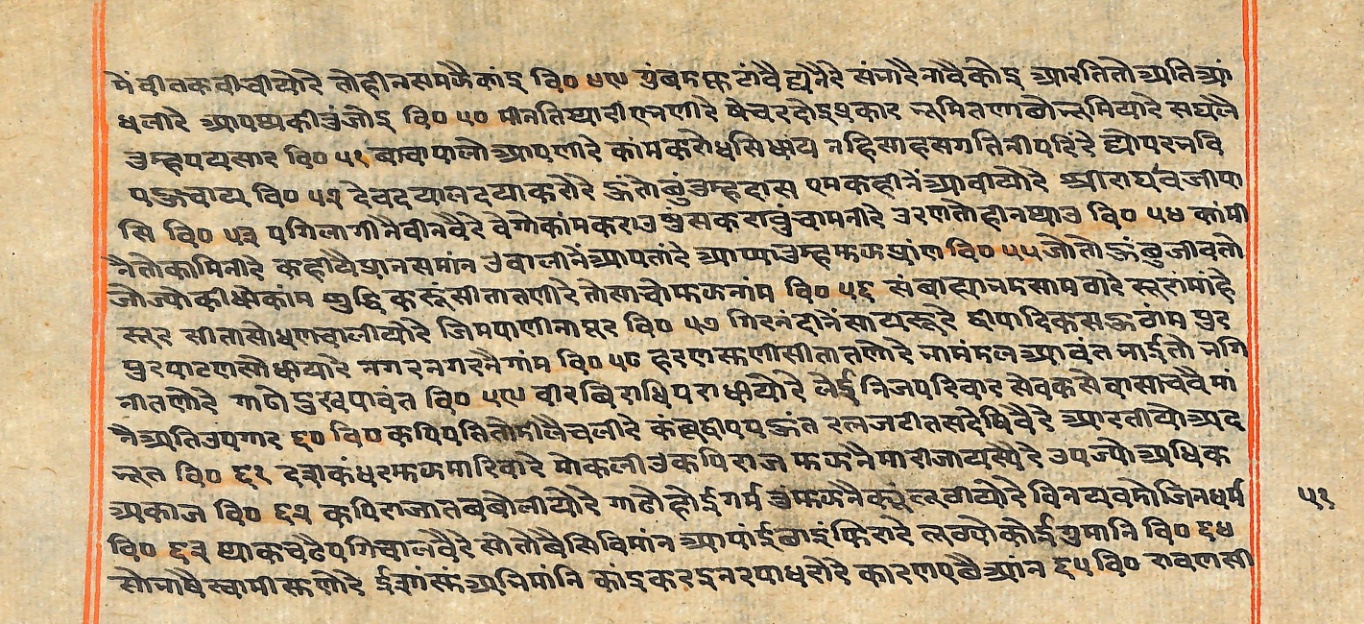 मेंवीतकवीवीयोरे तोहीनसमझैकांइ वि० ४९ युंबमफटांवैद्यनैरे संभारैनावैकोइ आरतितोअतिआं
धलीरे आपथकीउंजोइ वि० ५० मीनतिथारीएभणीरे षेचरदोइप्रकार भूमितणाछोभूमियारे सघलै
तुम्हपयसार वि० ५१ बाचापालोआपणीरे कांमकरोधसिधाय नहिसाहसगतिनीपरिंरे द्योपरभवि
पहुचाय वि० ५२ देवदयालदयाकरोरे हुंतोछुंतुम्हदास एमकहीनेंआवीयोरे श्रीराघवजीपा
सि वि० ५३ पगिलागीनैवीनवैरे वेगोकांमकराउ षुसकरावुंचामनीरे उरणतोहीनथाउ वि० ५४ कांमी
नैतोकामिनीरे कहीयैप्रानसमांन उवालीनेंआपतांरे आप्यातुम्हमुझप्रांण वि० ५५ जोतोहुंछुजीवतो
जोज्योकीधोकांम शुद्धिकरूंसीतातणीरे तोसाचोमुझनांम वि० ५६ संबाह्याभडसामठारे सूरामांहे
सूर सीतासोधणचालीयोरे जिमपाणीनापूर वि० ५७ गिरनंदीनेंसायरूरे द्वीपादिकसहुठाम पुर
पुरपाटणसोधीयारे नगरनगरनैगांम वि० ५८ हरणसुणीसीतातणोरे भामंडलआवंत भाईतोभगि
नातणोरे गाढोदुखपावंत वि० ५९ वीरविराधिपराधीयोरे लेईनिजपरिवार सेवकसेवासाचवैमां
नैअतिउपगार ६० वि० कपिपतितोमीलैचलीरे कंबूद्वीपपहुंत रत्नजटीतसदेषिवैरे आरतीयोअद
भूत वि० ६१ दशकंधरमुझमारिवारे मोकलीउकपिराज मुझनैमारीजायस्यैरे उपज्योअधिक
अकाज वि० ६२ कपिराजातबबोलीयोरे गाढोहोईगर्म तुमुझनैक्युंभूलवीयोरे विनयवमोजिनधर्म
वि० ६३ थाकचढैपगिचालवैरे सोतोबैसिविमांन आपांईठाइंफिरारे लाग्योकोईतुमानि वि० ६४
सोभाषैस्वामीसुणोरे ईस्युंअभिमांनि कांइकरइनरपाधरोरे कारणपछैआंन ६५ वि० रावणसी
५१